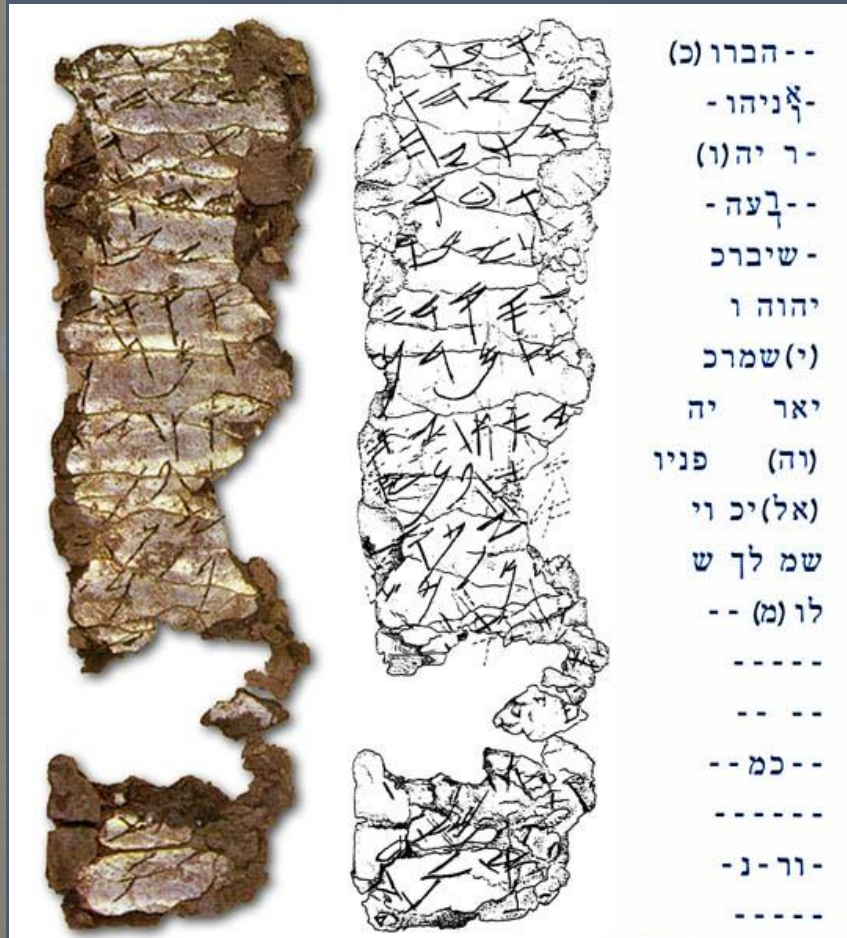 --הברו (כ)
-א/רניהו -
-ר יה(ו)
--ב/רעה -
- שיברכ
יהוה ו
(י)שמרכ
יאר יה
(וה) פניו
(אל)יכ וי
שמ לך ש
לו (מ) --
-----
-- --
--כמ--
------
-ור-נ-
-----